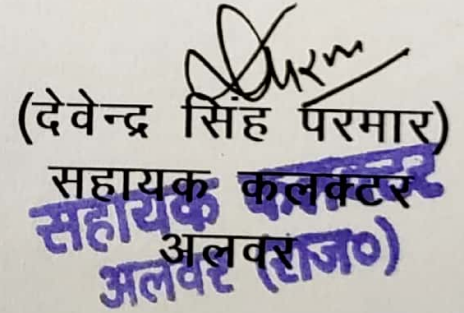 (देवेन्द्र सिंह परमार)
सहायक कलक्टर
अलवर
सहायक कलक्टर
अलवर (राज०)